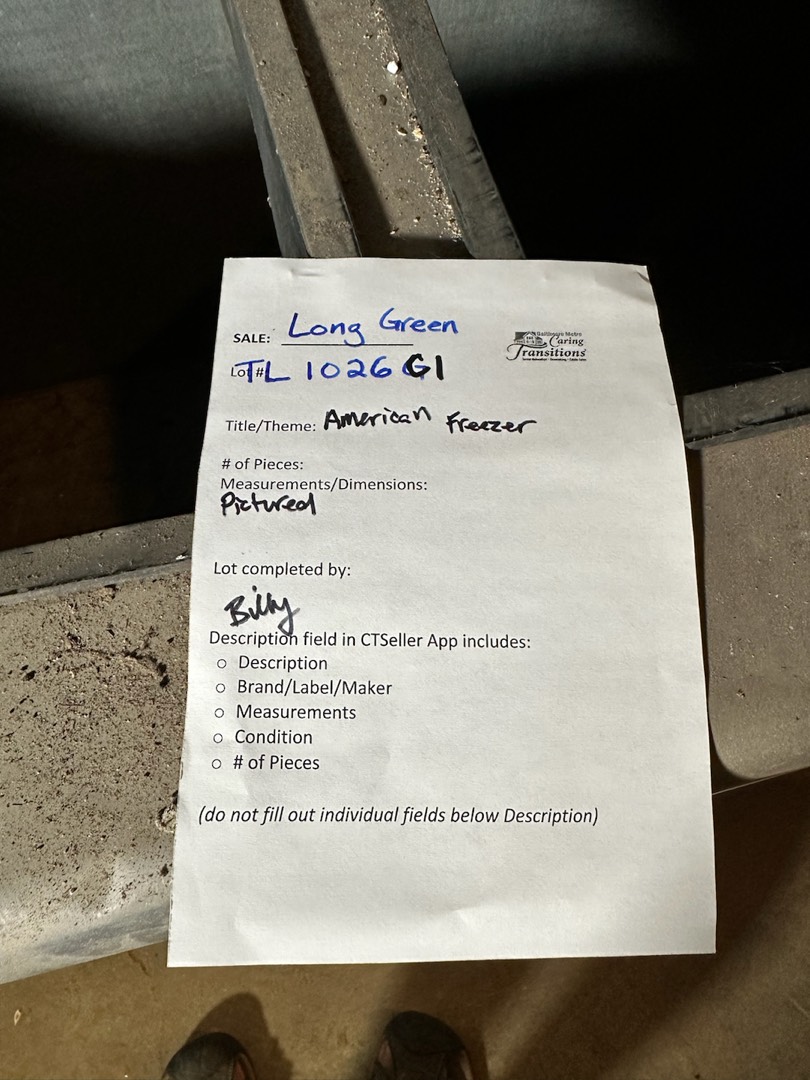 SALE: Long Green
Baltimore Metro
Caring
Transitions
Lot # TL 1026 G1
Title/Theme: American Freezer
# of Pieces:
Measurements/Dimensions:
Pictured
Lot completed by:
Billy
Description field in CTSeller App includes:
○ Description
○ Brand/Label/Maker
○ Measurements
○ Condition
○ # of Pieces
(do not fill out individual fields below Description)